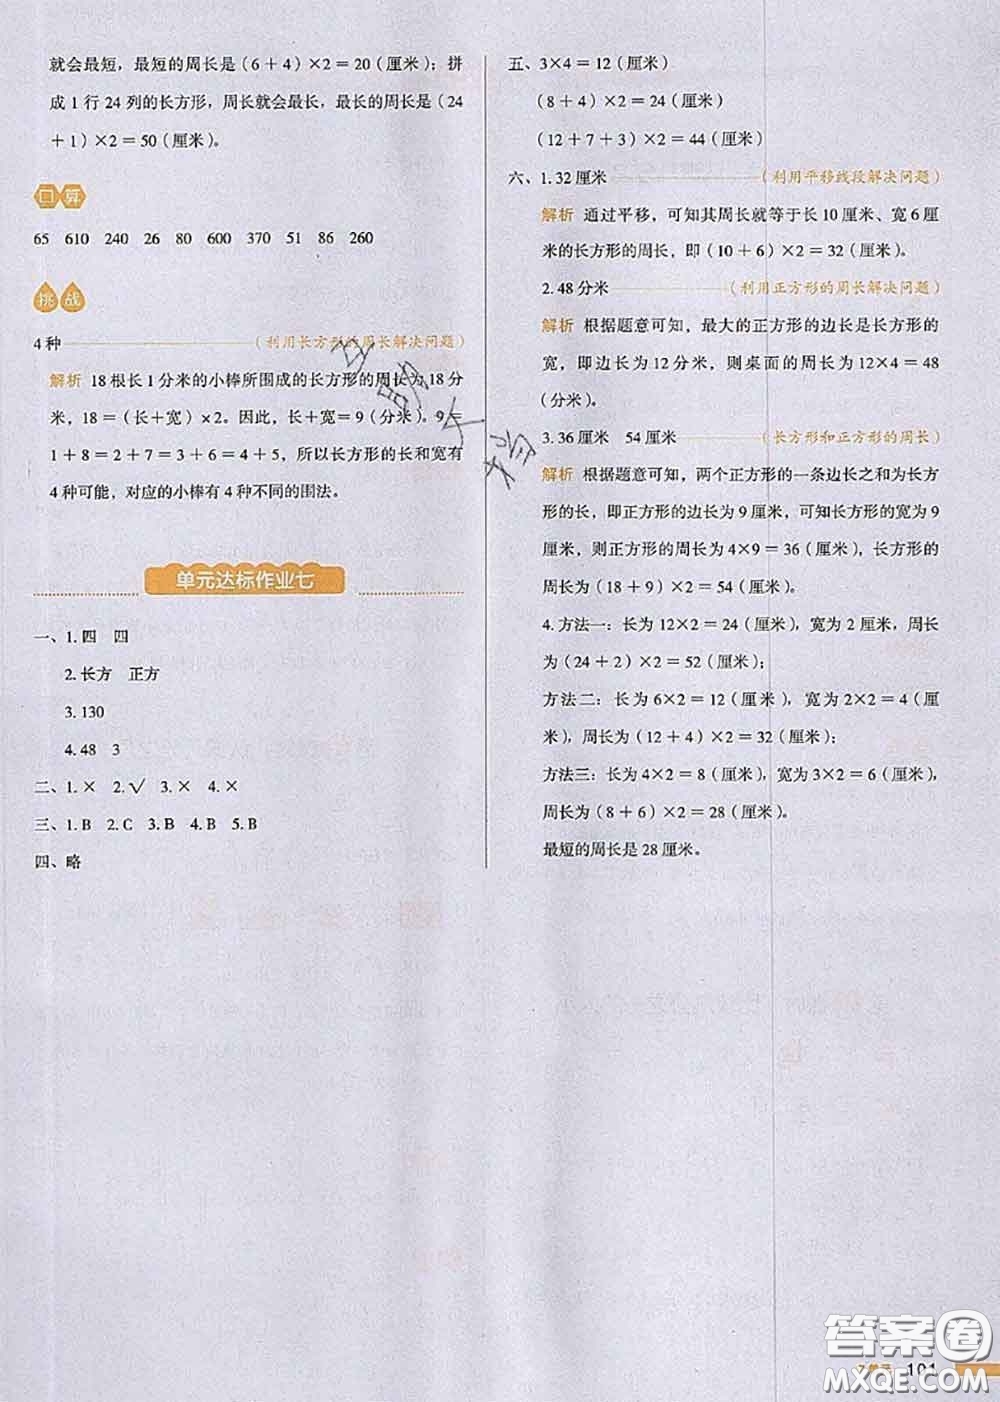 就会最短，最短的周长是（6＋4）×2＝20（厘米）；拼
成1行24列的长方形，周长就会最长，最长的周长是（24
＋1）×2＝50（厘米）。
口算
65 610 240 26 80 600 370 51 86 260
挑战
4种（利用长方形的周长解决问题）
解析 18根长1分米的小棒所围成的长方形的周长为18分
米，18＝（长＋宽）×2。因此，长＋宽＝9（分米）。9＝
1＋8＝2＋7＝3＋6＝4＋5，所以长方形的长和宽有
4种可能，对应的小棒有4种不同的围法。
单元达标作业七
一、1.四 四
2.长方 正方
3.130
4.48 3
二、1.× 2.√ 3.× 4.×
三、1.B 2.C 3.B 4.B 5.B
四、略
五、3×4＝12（厘米）
（8＋4）×2＝24（厘米）
（12＋7＋3）×2＝44（厘米）
六、1.32厘米（利用平移线段解决问题）
解析 通过平移，可知其周长就等于长10厘米、宽6厘
米的长方形的周长，即（10＋6）×2＝32（厘米）。
2.48分米（利用正方形的周长解决问题）
解析 根据题意可知，最大的正方形的边长是长方形的
宽，即边长为12分米，则桌面的周长为12×4＝48
（分米）。
3.36厘米 54厘米（长方形和正方形的周长）
解析 根据题意可知，两个正方形的一条边长之和为长方
形的长，即正方形的边长为9厘米，可知长方形的宽为9
厘米，则正方形的周长为4×9＝36（厘米），长方形的
周长为（18＋9）×2＝54（厘米）。
4.方法一：长为12×2＝24（厘米），宽为2厘米，周长
为（24＋2）×2＝52（厘米）；
方法二：长为6×2＝12（厘米），宽为2×2＝4（厘
米），周长为（12＋4）×2＝32（厘米）；
方法三：长为4×2＝8（厘米），宽为3×2＝6（厘米），
周长为（8＋6）×2＝28（厘米）。
最短的周长是28厘米。
101
答案圈
MXQE.COM